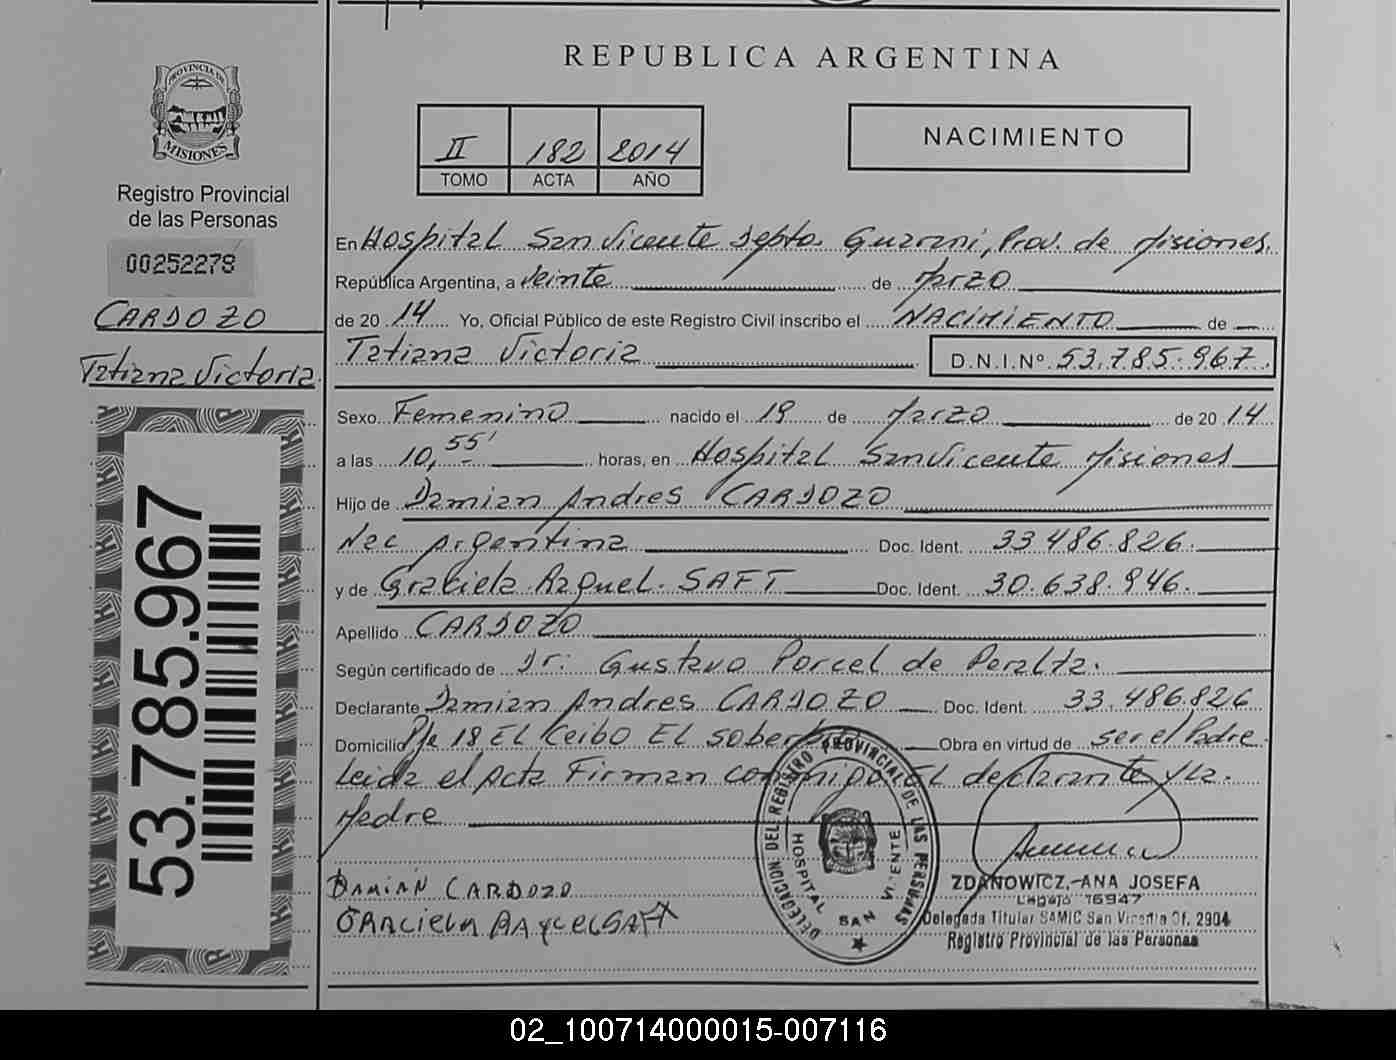 REPUBLICA ARGENTINA
PROVINCIA DE
MISIONES
Registro Provincial
de las Personas
00252278
CARDOZO
Tatiana Victoria
53.785.967
II 182 2014
TOMO ACTA AÑO
NACIMIENTO
En Hospital San Vicente Depto. Guarani, Prov. de Misiones.
República Argentina, a Veinte de Marzo
de 2014 Yo, Oficial Público de este Registro Civil inscribo el NACIMIENTO de
Tatiana Victoria D.N.I.Nº 53.785.967
Sexo Femenino nacido el 19 de Marzo de 2014
a las 10,55' horas, en Hospital San Vicente Misiones
Hijo de Damian Andres CARDOZO
Nac Argentina Doc. Ident. 33.486.826.
y de Graciela Raquel SAFT Doc. Ident. 30.638.946.
Apellido CARDOZO
Según certificado de Dr: Gustavo Porcel de Peralta.
Declarante Damian Andres CARDOZO Doc. Ident. 33.486.826
Domicilio Pje 18 El Ceibo El Soberbio Obra en virtud de ser el Padre
Leida el Acta Firman conmigo El declarante y La
Madre
DAMIÁN CARDOZO
GRACIELA RAQUEL SAFT
DELEGACION DEL REGISTRO PROVINCIAL DE LAS PERSONAS
HOSPITAL SAN VICENTE
ZDANOWICZ, ANA JOSEFA
Legajo 16947
Delegada Titular SAMIC San Vicente Of. 2904
Registro Provincial de las Personas
02_100714000015-007116